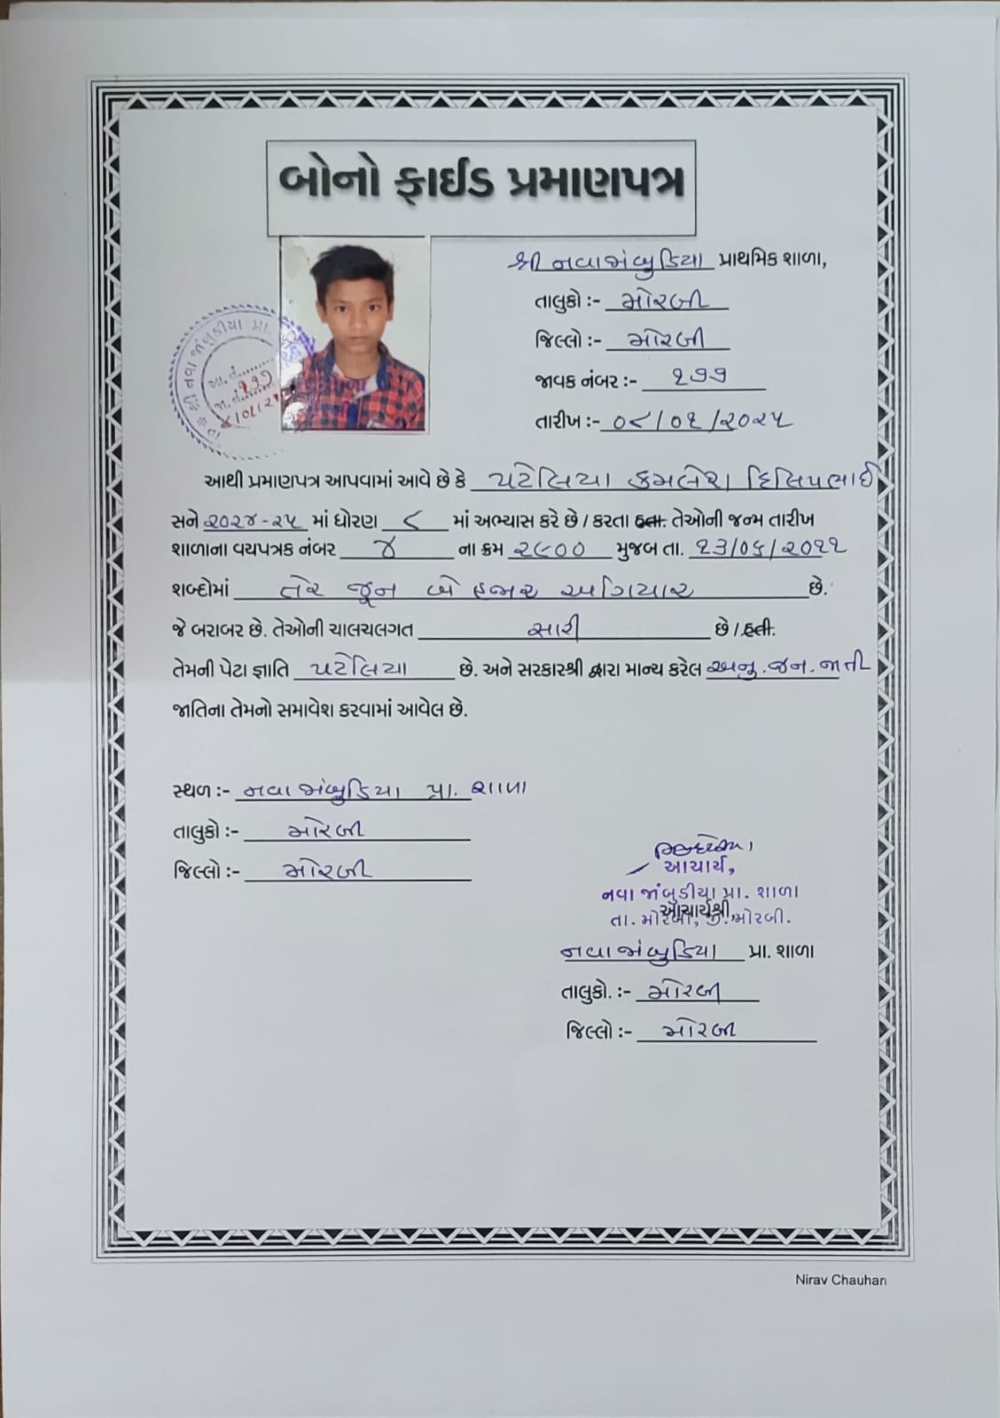 બોનો ફાઈડ પ્રમાણપત્ર
શ્રી નવાજાંબુડિયા પ્રાથમિક શાળા,
તાલુકો :- મોરબી
જિલ્લો :- મોરબી
જાવક નંબર :- ૧૭૭
તારીખ :- ૦૮/૦૧/૨૦૨૫
શ્રી નવા જાંબુડીયા પ્રા.
આ. નં.
જા. નં. ૧૭૭
આથી પ્રમાણપત્ર આપવામાં આવે છે કે પટેલિયા કમલેશ દિલિપભાઈ
સને ૨૦૨૪-૨૫ માં ધોરણ ૮ માં અભ્યાસ કરે છે / કરતા હતા. તેઓની જન્મ તારીખ
શાળાના વયપત્રક નંબર ૪ ના ક્રમ ૨૯૦૦ મુજબ તા. ૧૩/૦૬/૨૦૧૧
શબ્દોમાં તેર જૂન બે હજાર અગિયાર છે.
જે બરાબર છે. તેઓની ચાલચલગત સારી છે / હતી.
તેમની પેટા જ્ઞાતિ પટેલિયા છે. અને સરકારશ્રી દ્વારા માન્ય કરેલ અનુ. જન. જાતી
જાતિના તેમનો સમાવેશ કરવામાં આવેલ છે.
સ્થળ :- નવાજાંબુડિયા પ્રા. શાળા
તાલુકો :- મોરબી
જિલ્લો :- મોરબી
આચાર્ય,
નવા જાંબુડીયા પ્રા. શાળા
તા. મોરબી, જી. મોરબી.
આચાર્યશ્રી,
નવાજાંબુડિયા પ્રા. શાળા
તાલુકો. :- મોરબી
જિલ્લો :- મોરબી
Nirav Chauhan